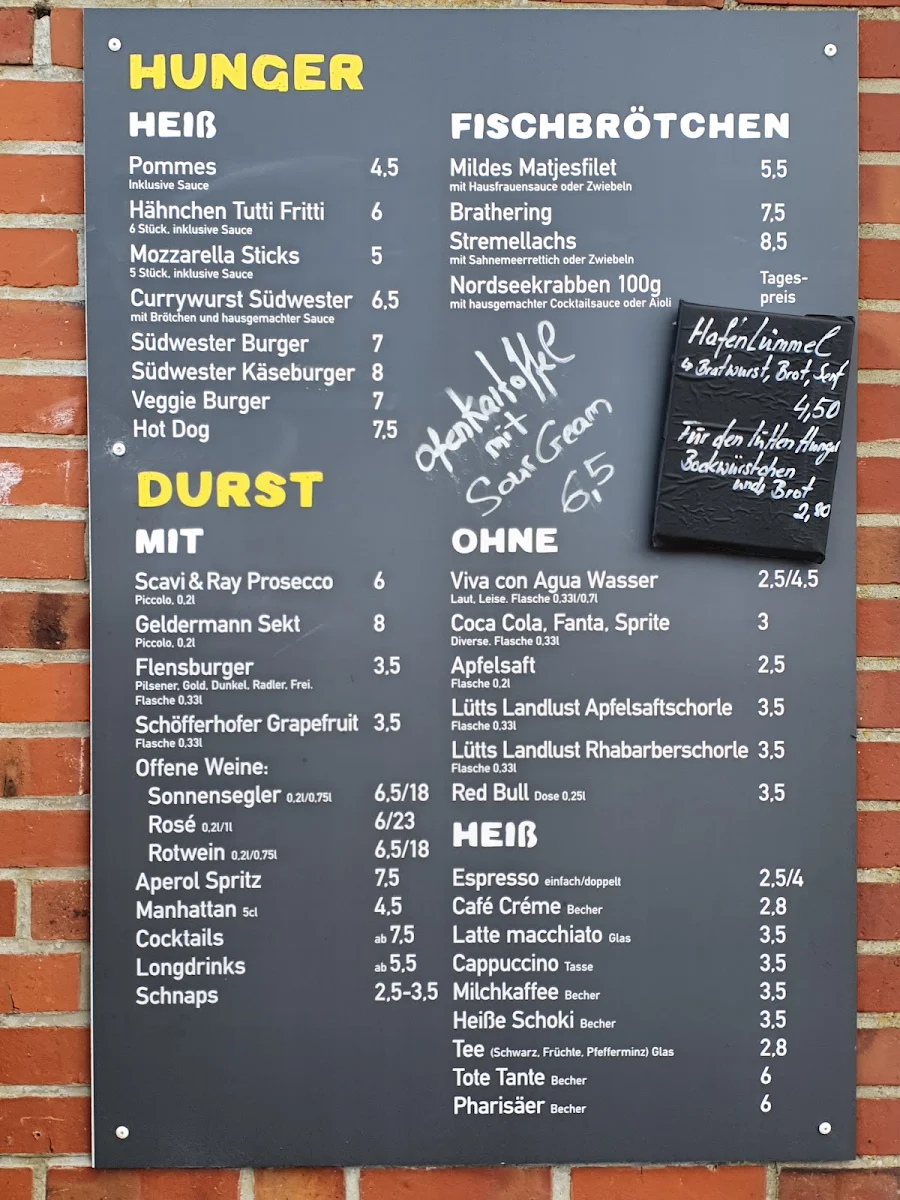 HUNGER
HEIß
Pommes 4,5
Inklusive Sauce
Hähnchen Tutti Fritti 6
6 Stück, inklusive Sauce
Mozzarella Sticks 5
5 Stück, inklusive Sauce
Currywurst Südwester 6,5
mit Brötchen und hausgemachter Sauce
Südwester Burger 7
Südwester Käseburger 8
Veggie Burger 7
Hot Dog 7,5
FISCHBRÖTCHEN
Mildes Matjesfilet 5,5
mit Hausfrauensauce oder Zwiebeln
Brathering 7,5
Stremellachs 8,5
mit Sahnemeerrettich oder Zwiebeln
Nordseekrabben 100g Tages-
mit hausgemachter Cocktailsauce oder Aioli preis
Ofenkartoffel
mit
Sour Cream
6,5
Hafenlümmel
↳ Bratwurst, Brot, Senf
4,50
Für den lütten Hunger
Bockwürstchen
und Brot
2,80
DURST
MIT
Scavi & Ray Prosecco 6
Piccolo, 0,2l
Geldermann Sekt 8
Piccolo, 0,2l
Flensburger 3,5
Pilsener, Gold, Dunkel, Radler, Frei.
Flasche 0,33l
Schöfferhofer Grapefruit 3,5
Flasche 0,33l
Offene Weine:
Sonnensegler 0,2l/0,75l 6,5/18
Rosé 0,2l/1l 6/23
Rotwein 0,2l/0,75l 6,5/18
Aperol Spritz 7,5
Manhattan 5cl 4,5
Cocktails ab 7,5
Longdrinks ab 5,5
Schnaps 2,5-3,5
OHNE
Viva con Agua Wasser 2,5/4,5
Laut, Leise. Flasche 0,33l/0,7l
Coca Cola, Fanta, Sprite 3
Diverse. Flasche 0,33l
Apfelsaft 2,5
Flasche 0,2l
Lütts Landlust Apfelsaftschorle 3,5
Flasche 0,33l
Lütts Landlust Rhabarberschorle 3,5
Flasche 0,33l
Red Bull Dose 0,25l 3,5
HEIß
Espresso einfach/doppelt 2,5/4
Café Créme Becher 2,8
Latte macchiato Glas 3,5
Cappuccino Tasse 3,5
Milchkaffee Becher 3,5
Heiße Schoki Becher 3,5
Tee (Schwarz, Früchte, Pfefferminz) Glas 2,8
Tote Tante Becher 6
Pharisäer Becher 6